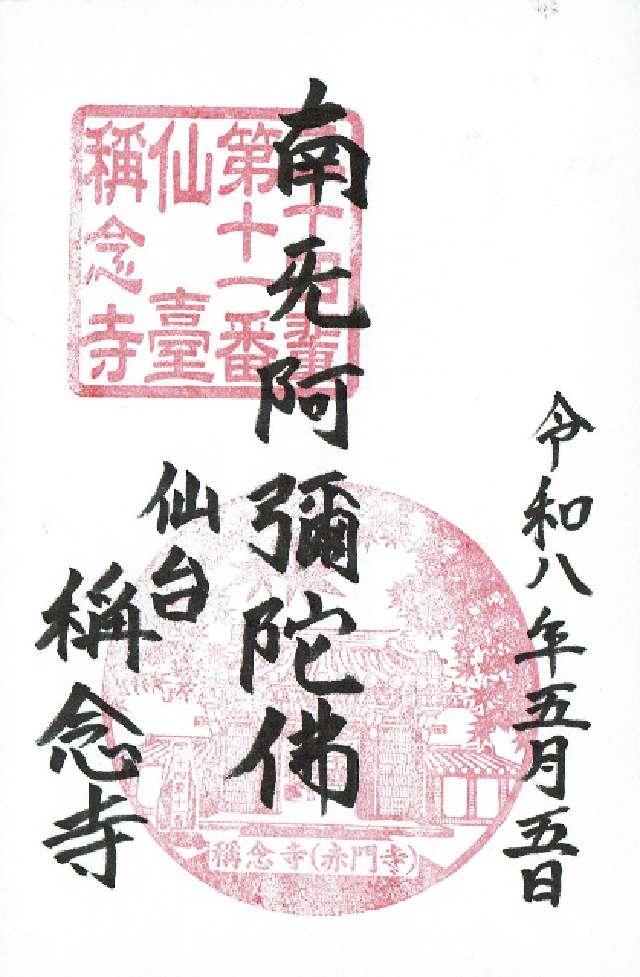 令和八年五月五日
南无阿彌陀佛
仙台
稱念寺
二十四輩
第十一番
仙臺
稱念寺
稱念寺(赤門寺)